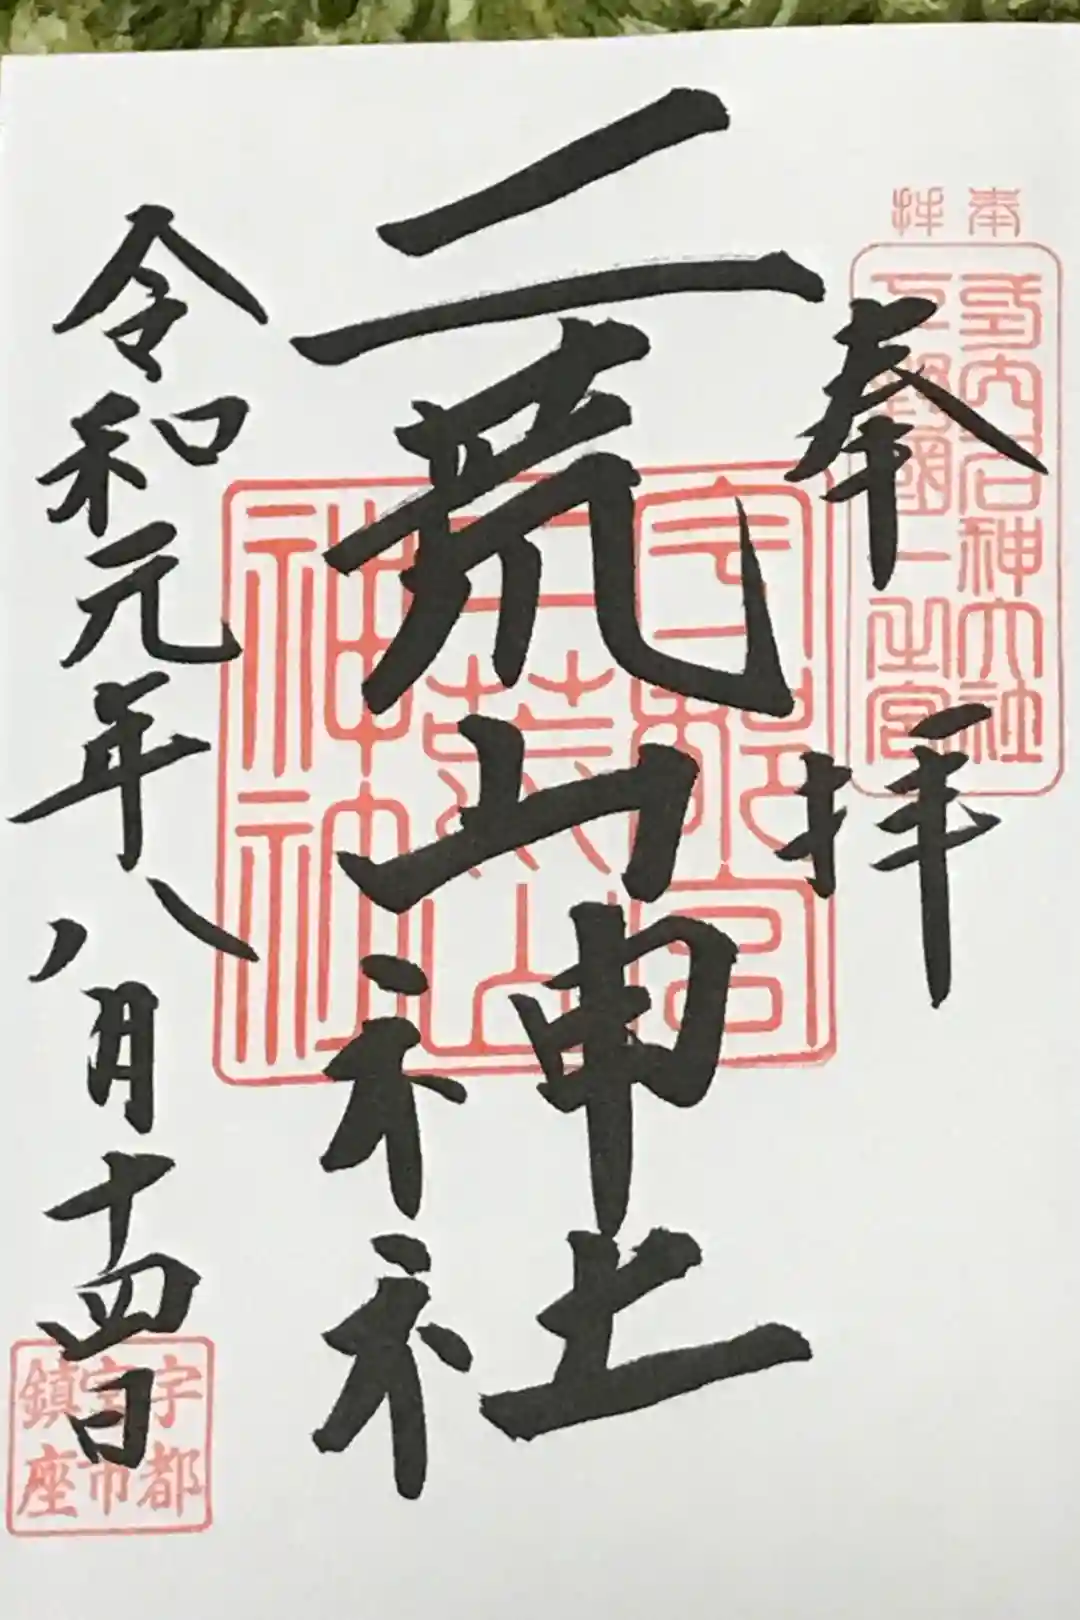 奉拝
式内名神大社
下野國一之宮
奉拝
二荒山神社
宇都宮
二荒山
神社
令和元年八月十四日
宇都
宮市
鎮座